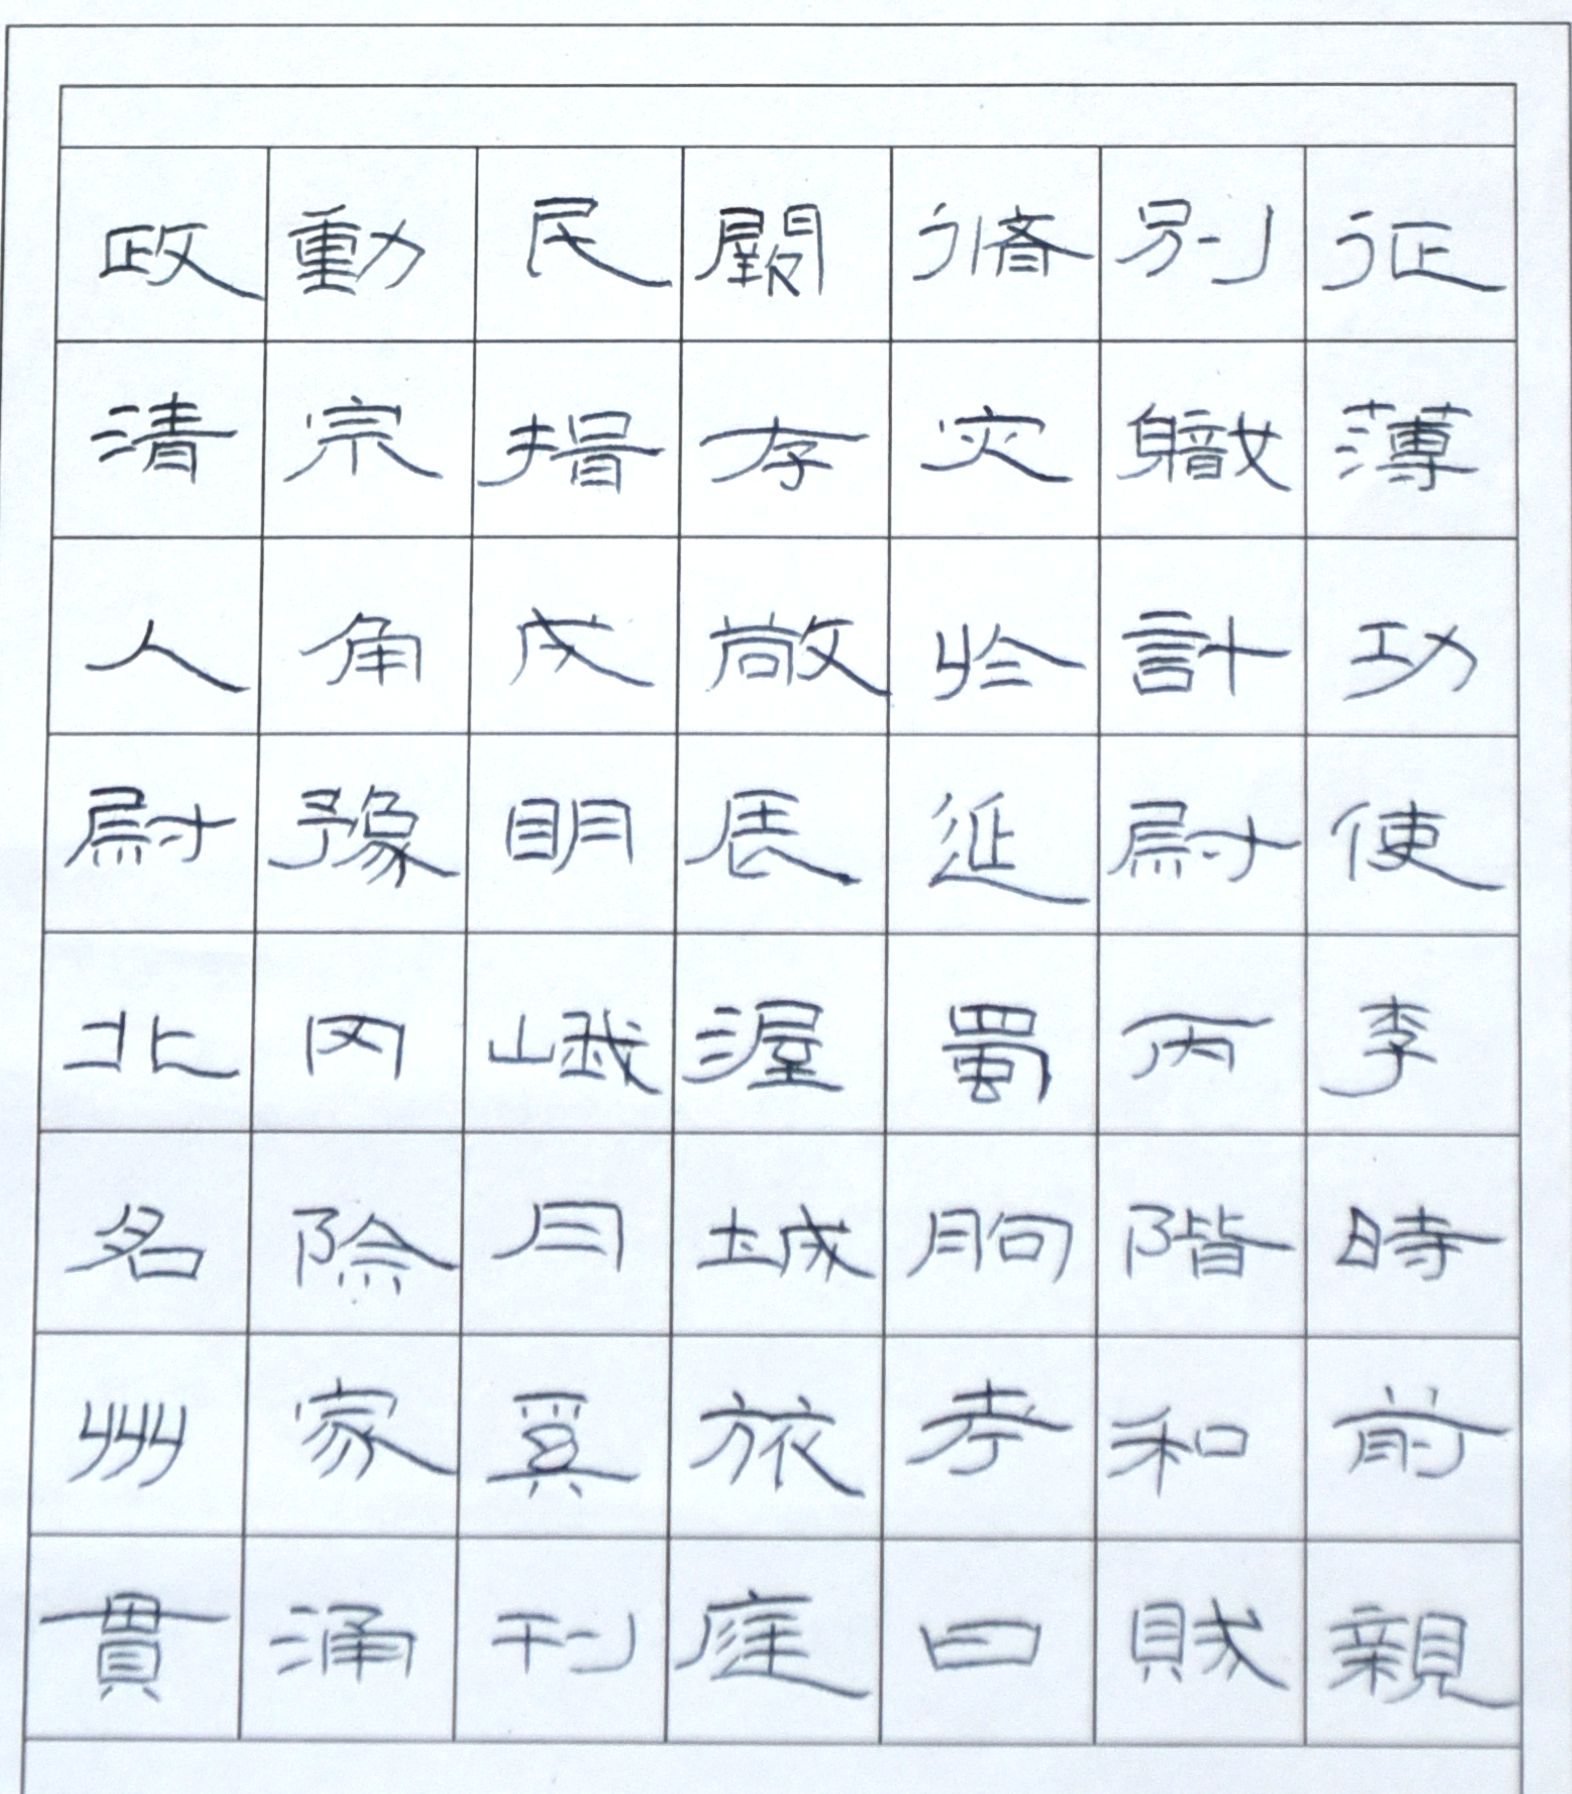 征薄功使李時前親
別職計尉丙階和財
脩灾於延蜀朐孝曰
存敞展渥城旅庭
民成明峨月刊
動宗角豫除家涌
政清人尉北名州貫